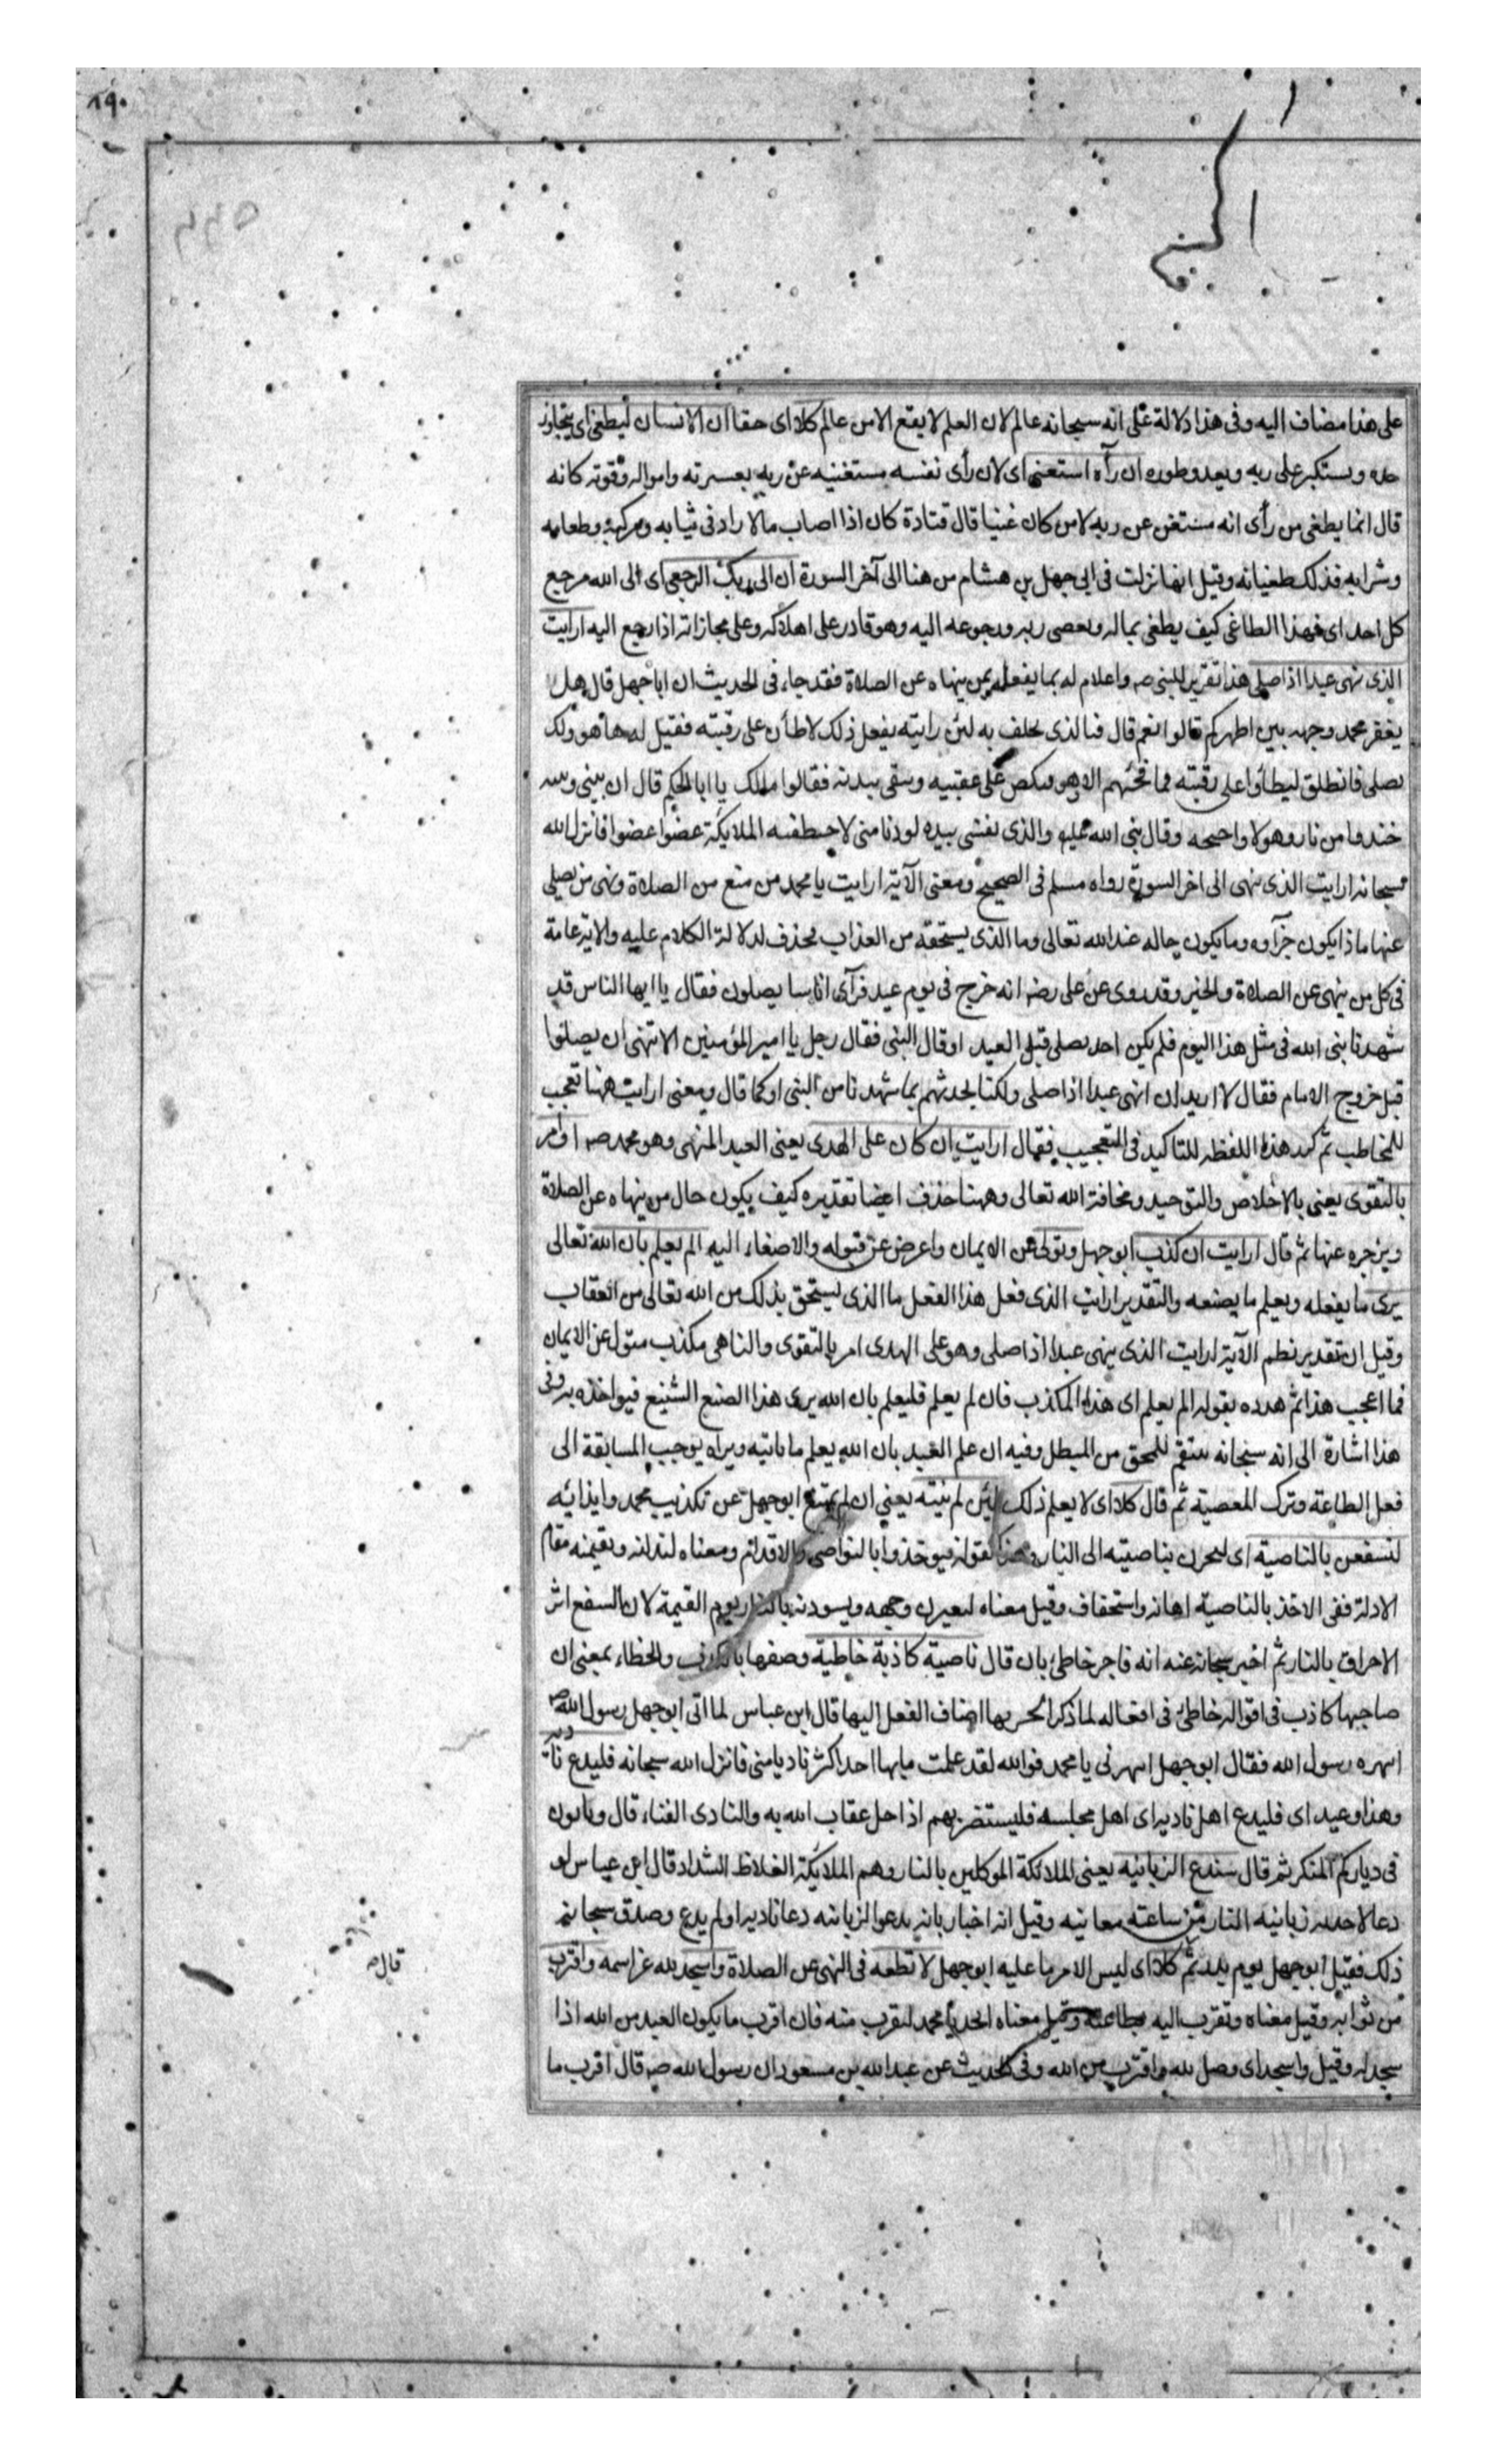 على هذا مضاف اليه وفى هذا دلالة على انه سبحانه عالم لان العلم لا يقع الا من عالم كلا اى حقا ان الانسان ليطغى اى يتجاوز
حده ويستكبر على ربه ويعدو طوره ان رآه استغنى اى لان رأى نفسه مستغنيه عن ربه بعسرته وامواله وقوته كانه
قال انما يطغى من رأى انه مستغن عن ربه لا من كان غنيا قال قتادة كان اذا اصاب مالا زاد فى ثيابه ومركبه وطعامه
وشرابه فذلك طغيانه وقيل انها نزلت فى ابى جهل بن هشام من هنا الى آخر السورة ان الى ربك الرجعى اى الى الله مرجع
كل احد اى فهذا الطاغى كيف يطغى بماله ويعصى ربه ورجوعه اليه وهو قادر على اهلاكه وعلى مجازاته اذا رجع اليه ارايت
الذى ينهى عبدا اذا صلى هذا تقرير للنبى صه واعلام له بما يفعله بمن ينهاه عن الصلاة فقد جاء فى الحديث ان ابا جهل قال هل
يعفر محمد وجهه بين اظهركم قالوا نعم قال فبالذى يحلف به لئن رايته يفعل ذلك لاطأن على رقبته فقيل له ها هو ذلك
يصلى فانطلق ليطأوا على رقبته فما فجئهم الا وهو ينكص على عقبيه ويتقى بيديه فقالوا مالك يا ابا الحكم قال ان بينى وبينه
خندقا من نار وهولا واجنحه وقال نبى الله عليه والذى نفسى بيده لو دنا منى لاختطفته الملايكة عضوا عضوا فانزل الله
سبحانه ارايت الذى ينهى الى اخر السورة رواه مسلم فى الصحيح ومعنى الآية ارايت يا محمد من منع من الصلاة ونهى من يصلى
عنها ماذا يكون جزآوه وما يكون حاله عند الله تعالى وما الذى يستحقه من العذاب فحذف لدلالة الكلام عليه والاية عامة
فى كل من ينهى عن الصلاة والخير وقد روى عن على رضه انه خرج فى يوم عيد فرآى اناسا يصلون فقال يا ايها الناس قد
شهدنا نبى الله فى مثل هذا اليوم فلم يكن احد يصلى قبل العيد او قال النبى فقال رجل يا امير المؤمنين الا تنهى ان يصلوا
قبل خروج الامام فقال لا اريد ان انهى عبدا اذا صلى ولكنا نحدثهم بما شهدنا من النبى او كما قال ومعنى ارايت ههنا تعجب
للمخاطب ثم كرر هذه اللفظه للتاكيد فى التعجيب فقال ارايت ان كان على الهدى يعنى العبد المنهى وهو محمد صه او امر
بالتقوى يعنى بالاخلاص والتوحيد ومخافة الله تعالى وههنا حذف ايضا تقديره كيف يكون حال من ينهاه عن الصلاة
ويزجره عنها ثم قال ارايت ان كذب ابو جهل وتولى عن الايمان واعرض عن قبوله والاصغاء اليه الم يعلم بان الله تعالى
يرى ما يفعله ويعلم ما يصنعه والتقدير ارايت الذى فعل هذا الفعل ما الذى يستحق بذلك من الله تعالى من العقاب
وقيل ان تقدير نظم الآية ارايت الذى ينهى عبدا اذا صلى وهو على الهدى امر بالتقوى والناهى مكذب متول عن الايمان
فما اعجب هذا ثم هدده بقوله الم يعلم اى هذا المكذب فان لم يعلم فليعلم بان الله يرى هذا الصنع الشنيع فيواخذه به وفى
هذا اشارة الى انه سبحانه ينتقم للمحق من المبطل وفيه ان علم العبد بان الله يعلم ما ياتيه ويراه يوجب المسابقة الى
فعل الطاعة وترك المعصية ثم قال كلا اى لا يعلم ذلك لئن لم ينته يعنى ان لم يمتنع ابو جهل عن تكذيب محمد وايذائه
لنسفعن بالناصية اى لنجرن بناصيته الى النار وهذا كقوله فيوخذوا بالنواصى والاقدام ومعناه لنذلنه ونقيمنه مقام
الاذلة ففى الاخذ بالناصية اهانة واستخفاف وقيل معناه لنغيرن وجهه ونسودنه بالنار يوم القيمة لان السفع اثر
الاحراق بالنار ثم اخبر سبحانه عنه انه فاجر خاطئ بان قال ناصية كاذبة خاطية وصفها بالكذب والخطاء بمعنى ان
صاحبها كاذب فى اقواله خاطئ فى افعاله لما ذكر الجر بها اضاف الفعل اليها قال ابن عباس لما اتى ابو جهل رسول الله صه
انتهره رسول الله فقال ابو جهل اتنهرنى يا محمد فوالله لقد علمت ما بها احد اكثر ناديا منى فانزل الله سبحانه فليدع ناديه
وهذا وعيد اى فليدع اهل ناديه اى اهل مجلسه فليستنصر بهم اذا حل عقاب الله به والنادى الفناء قال وياتون
فى دياركم المنكر ثم قال سندع الزبانيه يعنى الملائكة الموكلين بالنار وهم الملايكة الغلاظ الشداد قال ابن عباس لو
دعا لاخذته زبانيه النار من ساعته معاينه وقيل انه اخبار بانه يدعو الزبانيه دعا ناديه او لم يدع وصدق سبحانه
ذلك فقتل ابو جهل يوم بدر ثم كلا اى ليس الامر ما عليه ابو جهل لا تطعه فى النهى عن الصلاة واسجد لله عز اسمه واقترب
من ثوابه وقيل معناه وتقرب اليه بطاعته وقيل معناه اسجد يا محمد لتقرب منه فان اقرب ما يكون العبد من الله اذا
سجد له وقيل واسجد اى وصل لله واقترب من الله وفى الحديث عن عبد الله بن مسعود ان رسول الله صه قال اقرب ما
قال صه